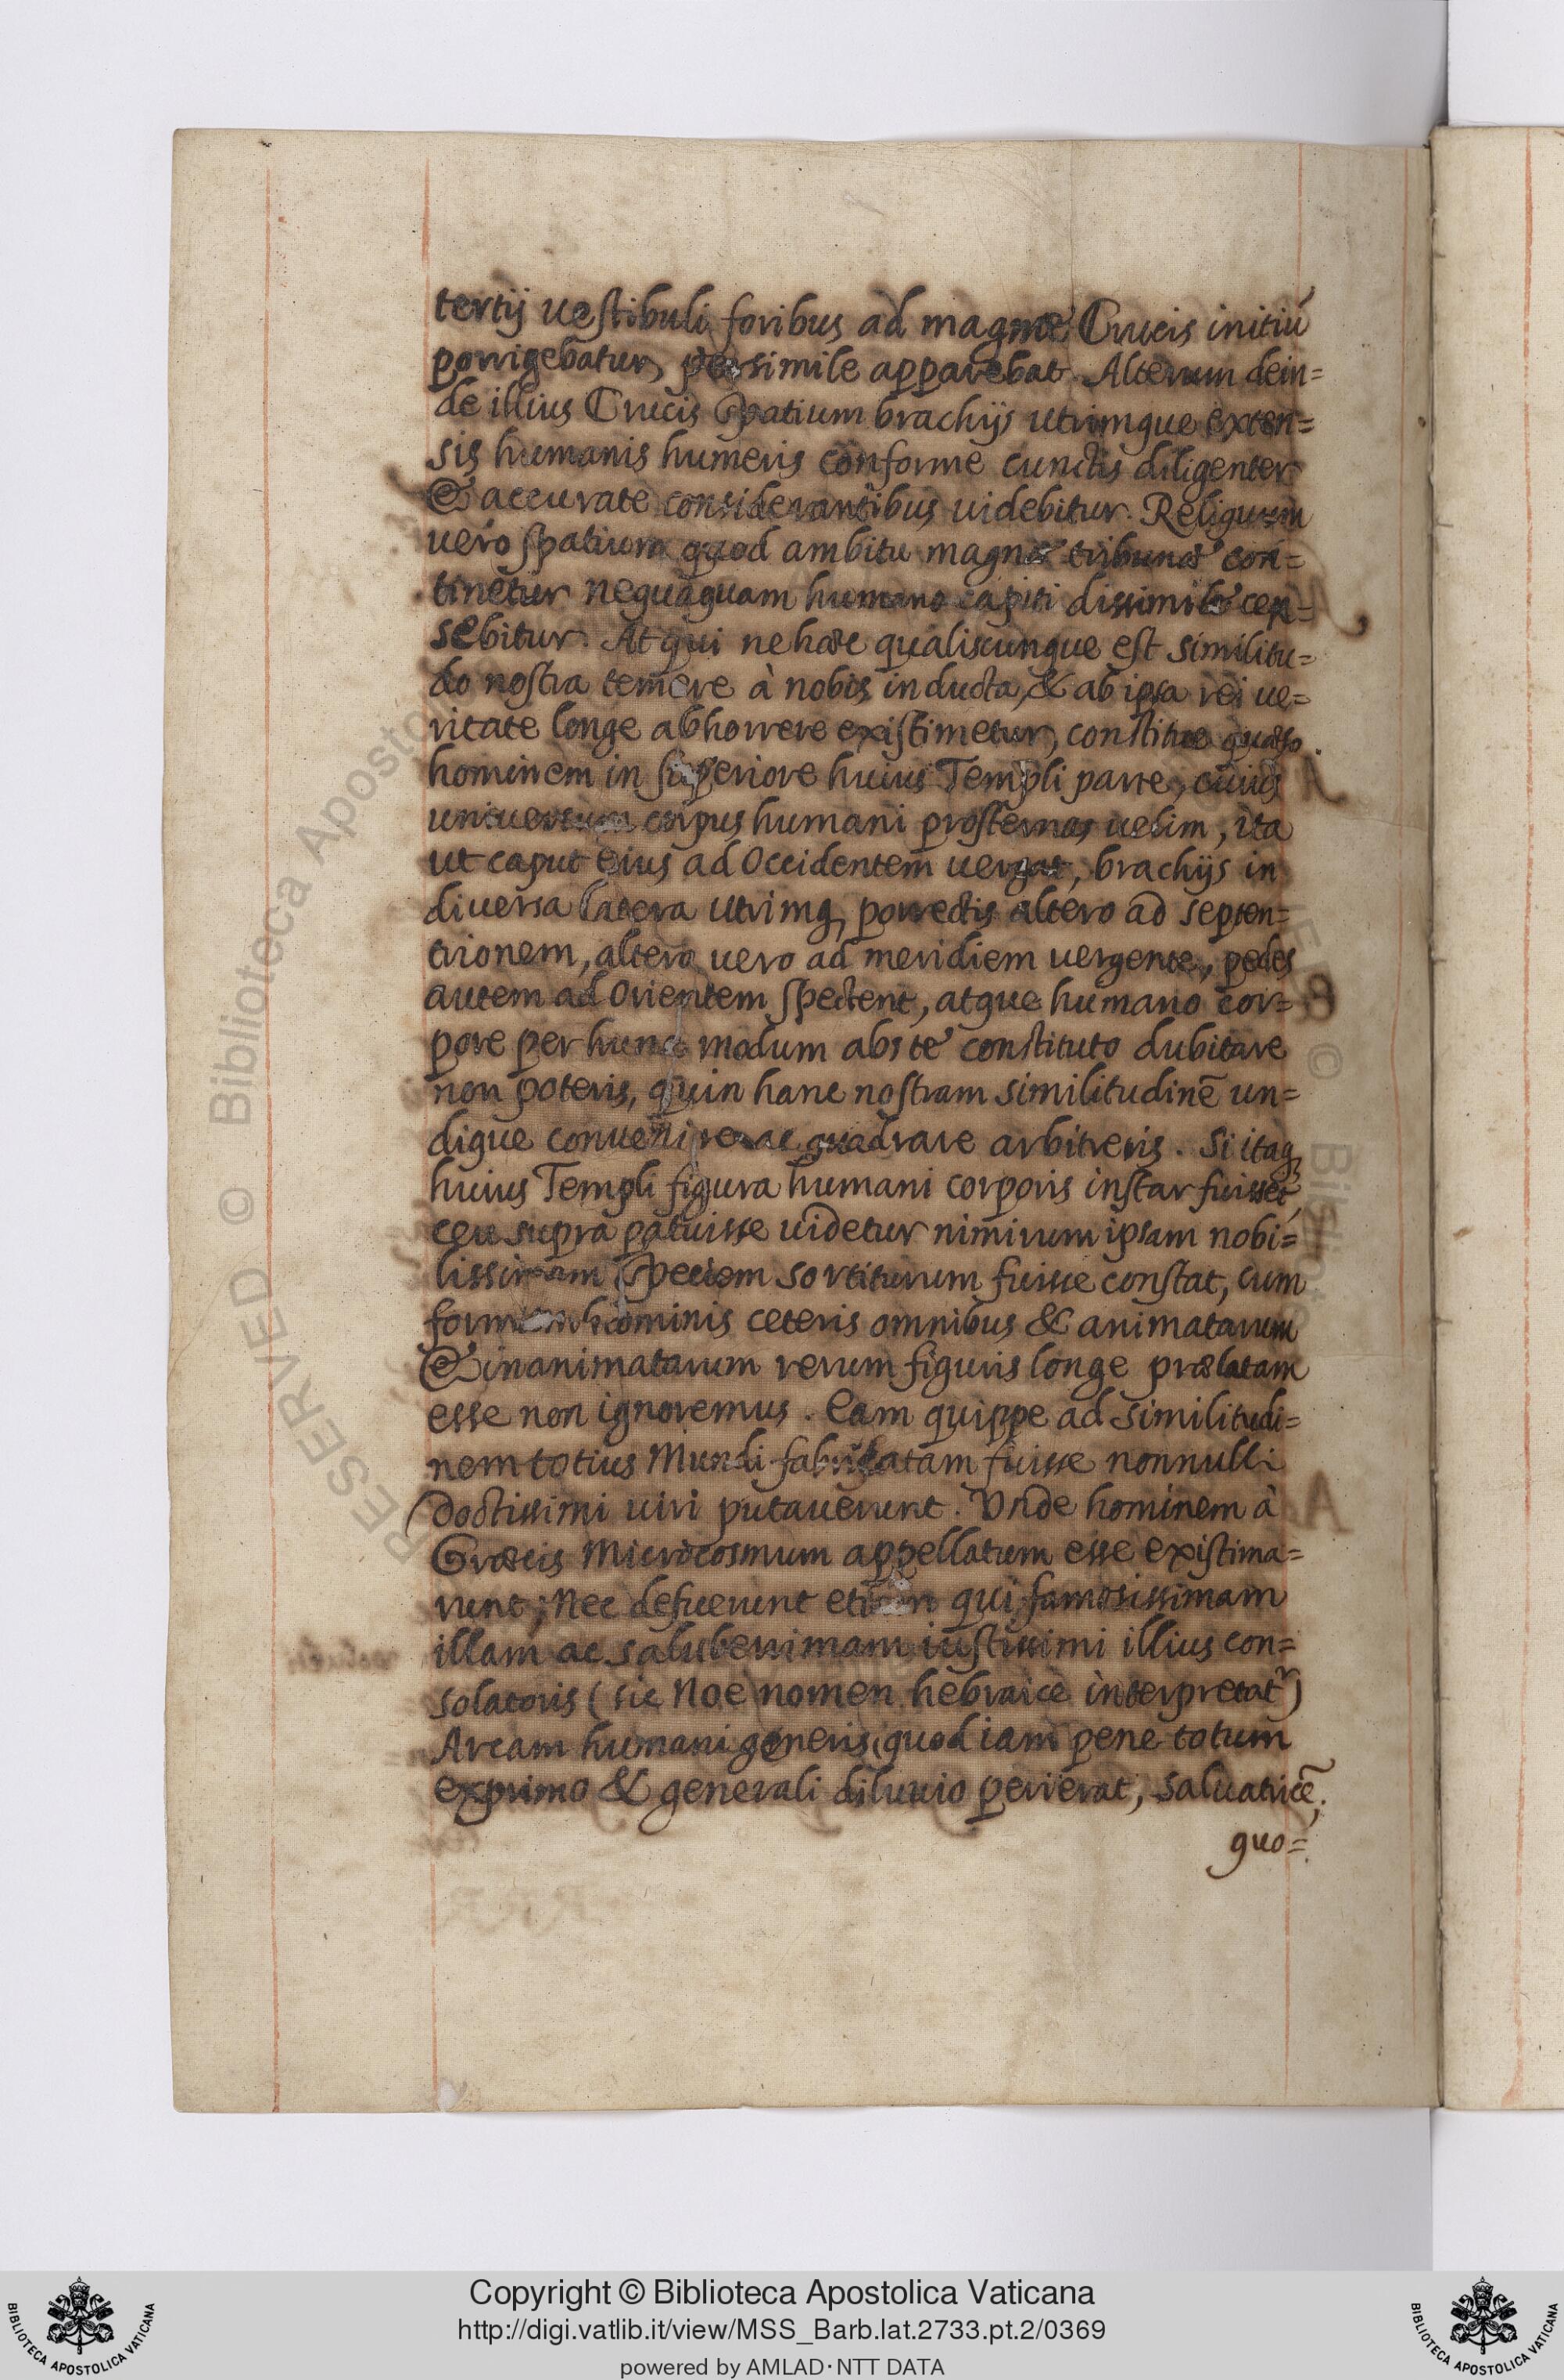 tertij uestibuli foribus ad magnæ Crucis initiū
porrigebatur, persimile apparebat. Alterum dein=
de illius Crucis spatium brachijs utrimque exten=
sis humanis humeris conforme cunctis diligenter
& accurate considerantibus uidebitur. Reliquum
uero spatium quod ambitu magnæ tribunæ con=
tinetur nequaquam humano capiti dissimile cen=
sebitur. At qui ne hæc qualiscunque est similitu=
do nostra temere à nobis inducta, & ab ipsa rei ue=
ritate longe abhorrere existimetur, constitue quæso
hominem in superiore huius Templi parte, cuius
uniuersum corpus humani prosternas uelim, ita
ut caput eius ad Occidentem uergat, brachijs in
diuersa latera utrimq, porrectis altero ad septen=
trionem, altero uero ad meridiem uergente, pedes
autem ad Orientem spectent, atque humano cor=
pore per hunc modum abs te constituto dubitare
non poteris, quin hanc nostram similitudinē un=
dique conuenire ac quadrare arbitreris. Si itaq,
huius Templi figura humani corporis instar fuisset,
ceu supra patuisse uidetur nimirum ipsam nobi=
lissimam speciem sortiturum fuisse constat, cum
formam hominis ceteris omnibus & animatarum
& inanimatarum rerum figuris longe prælatam
esse non ignoremus. Eam quippe ad similitudi=
nem totius Mundi fabricatam fuisse nonnulli
Doctissimi uiri putauerunt. Vnde hominem à
Græcis Microcosmum appellatum esse existima=
runt; Nec defuerunt etiam qui famosissimam
illam ac saluberrimam iustissimi illius con=
solatoris (sic Noe nomen hebraice interpretat̃)
Arcam humani generis, quod iam pene totum
ex primo & generali diluuio perierat, saluatricē,
quo=
A
B
A
© Biblioteca Apostolica
RESERVED
Copyright © Biblioteca Apostolica Vaticana
http://digi.vatlib.it/view/MSS_Barb.lat.2733.pt.2/0369
powered by AMLAD·NTT DATA
BIBLIOTECA APOSTOLICA VATICANA
BIBLIOTECA APOSTOLICA VATICANA